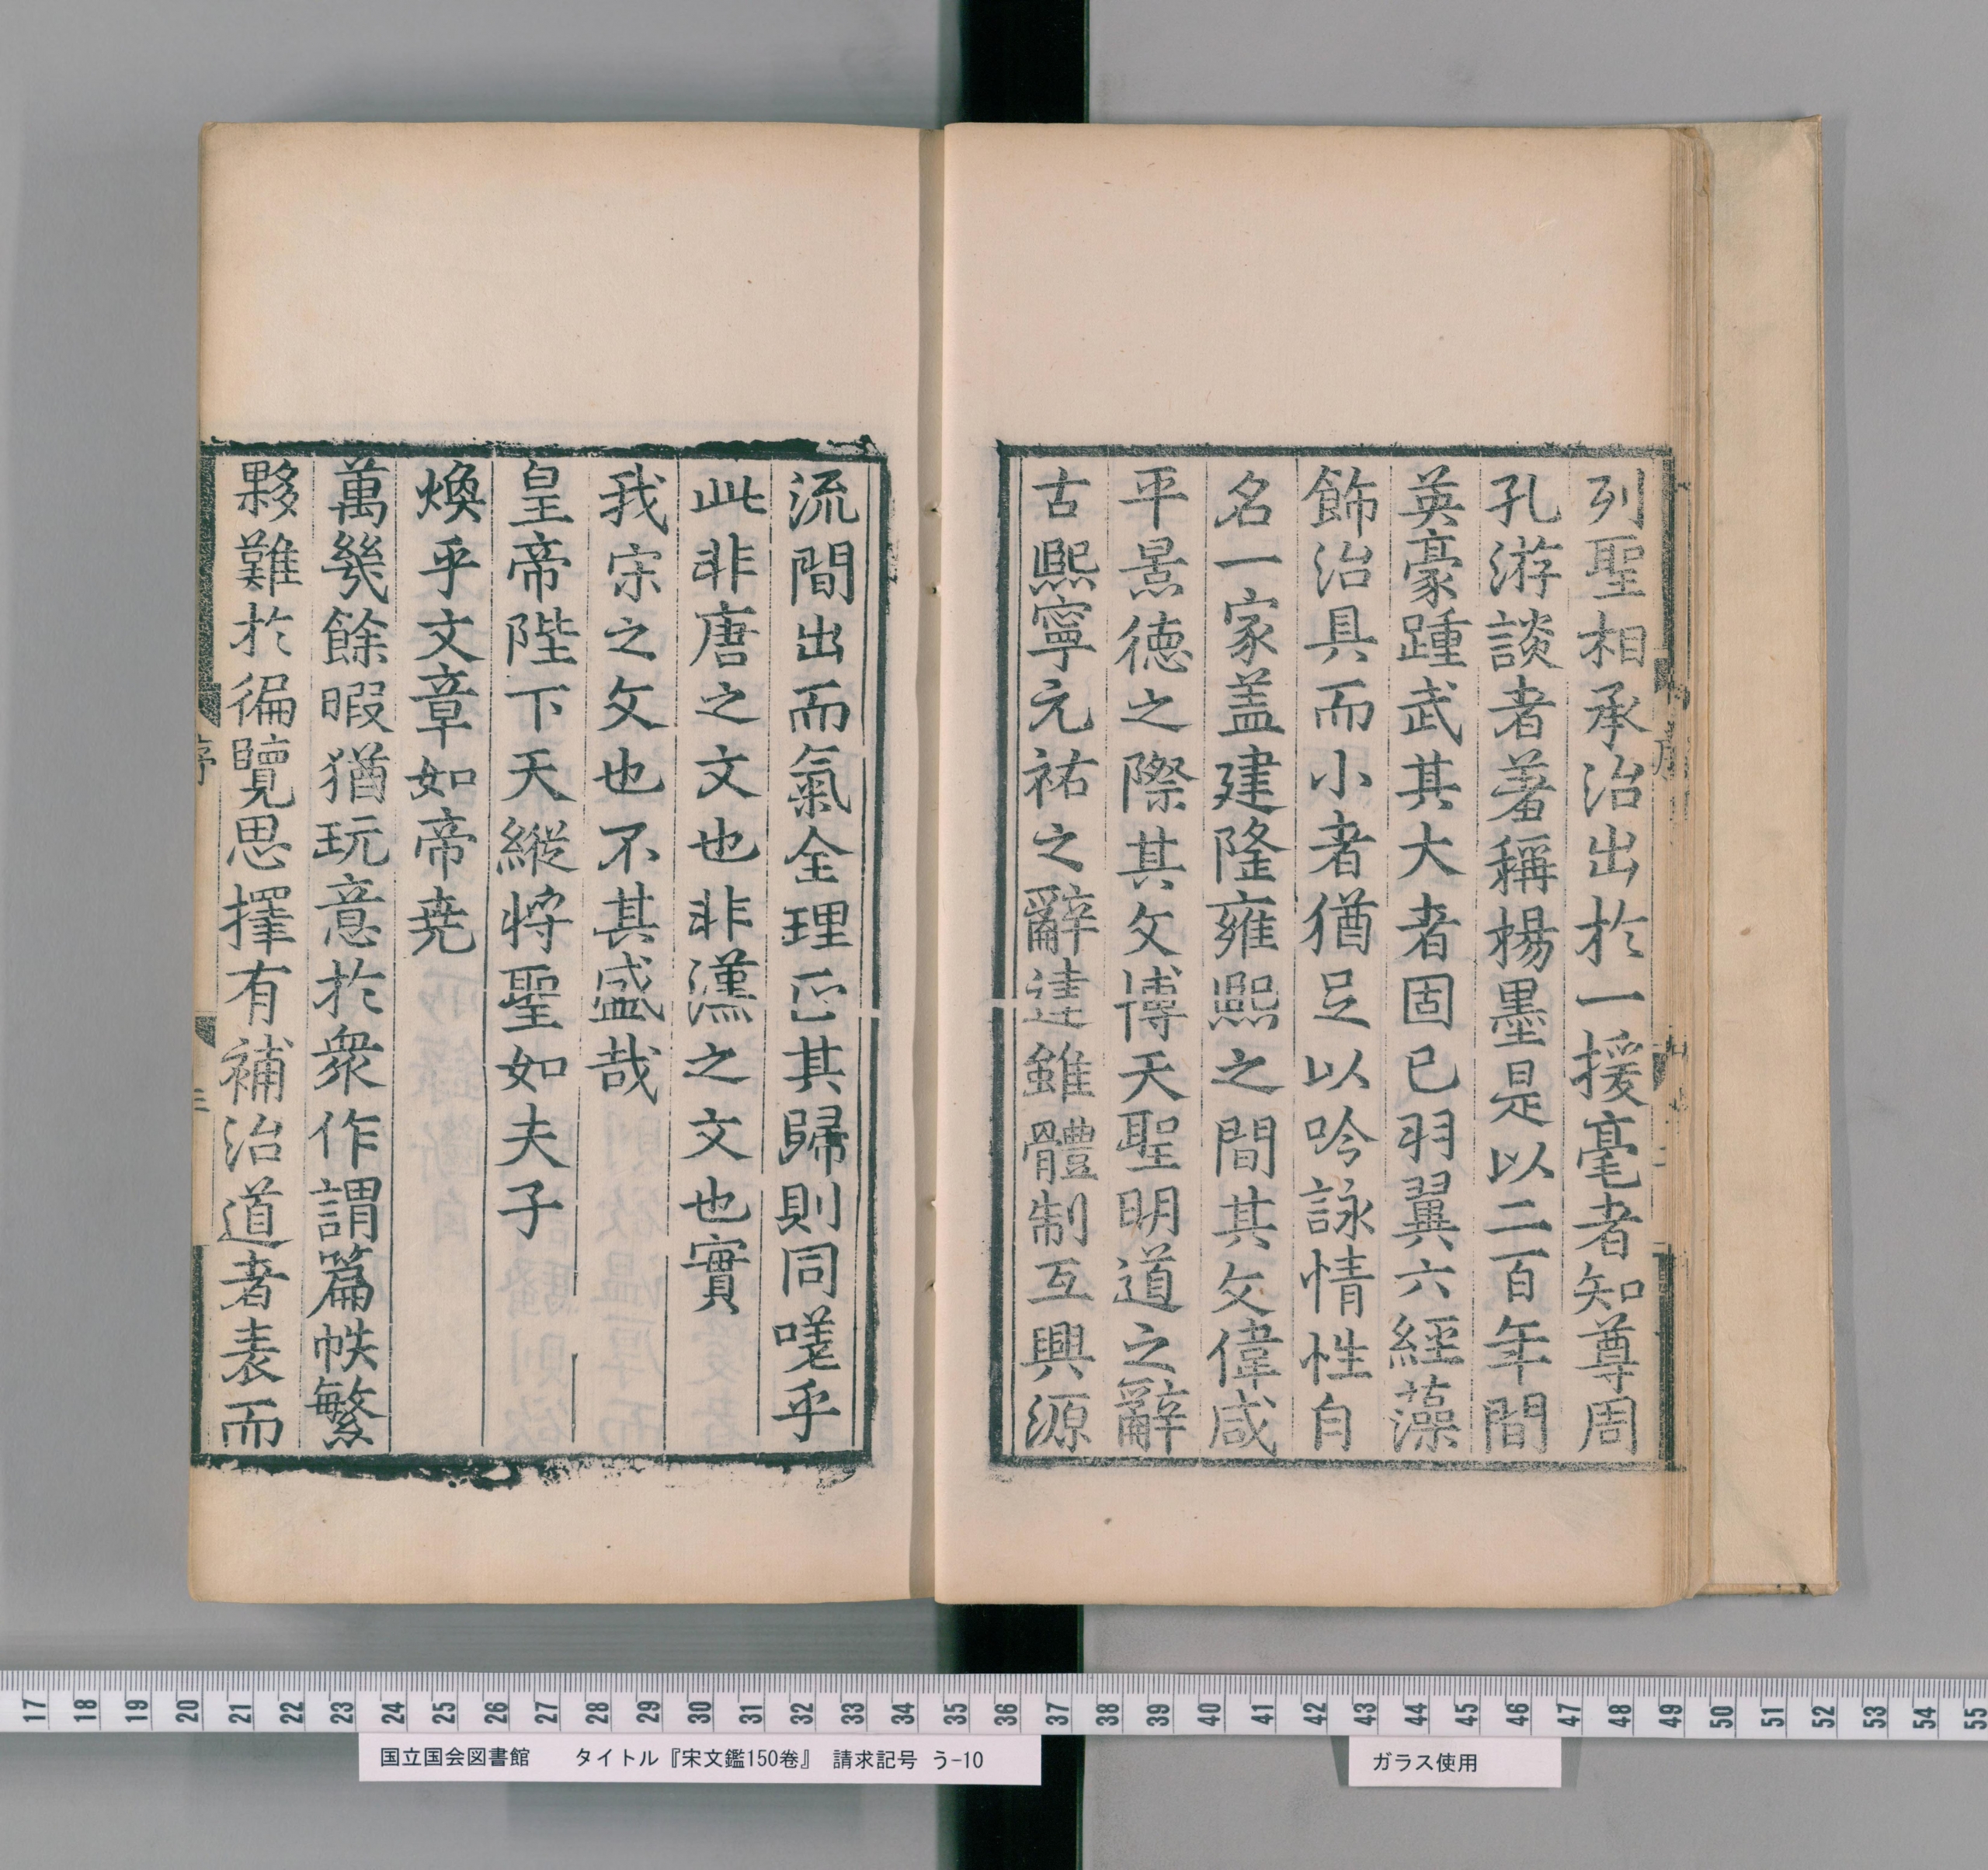 列聖相承治出於一援毫者知尊周
孔游談者羞稱楊墨是以二百年間
英豪踵武其大者固已羽翼六經藻
飾治具而小者猶足以吟詠情性自
名一家盖建隆雍熙之間其文偉咸
平景德之際其文博天聖明道之辭
古熙寧元祐之辭達雖體制互興源
流間出而氣全理正其歸則同嗟乎
此非唐之文也非漢之文也實
我宋之文也不其盛哉
皇帝陛下天縱将聖如夫子
煥乎文章如帝尭
萬幾餘暇猶玩意於衆作謂篇帙繁
夥難於徧覽思擇有補治道者表而
序
三
17 18 19 20 21 22 23 24 25 26 27 28 29 30 31 32 33 34 35 36 37 38 39 40 41 42 43 44 45 46 47 48 49 50 51 52 53 54 55
国立国会図書館 タイトル『宋文鑑150巻』 請求記号 う-10
ガラス使用